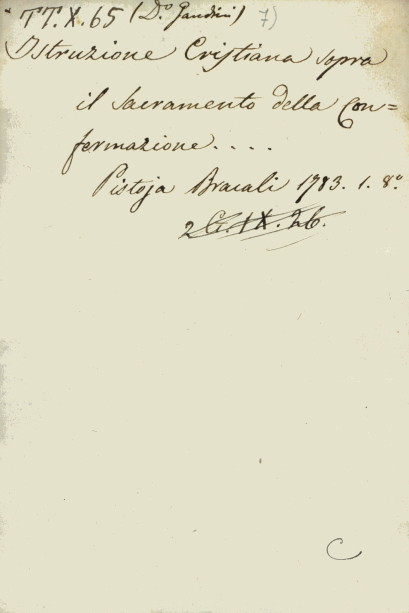 TT.X.65 (D.º Gandini) 7)
Istruzione Cristiana sopra
il sacramento della Con=
fermazione....
Pistoja Bracali 1783. 1. 8º.
2 G. IX. 26.
C